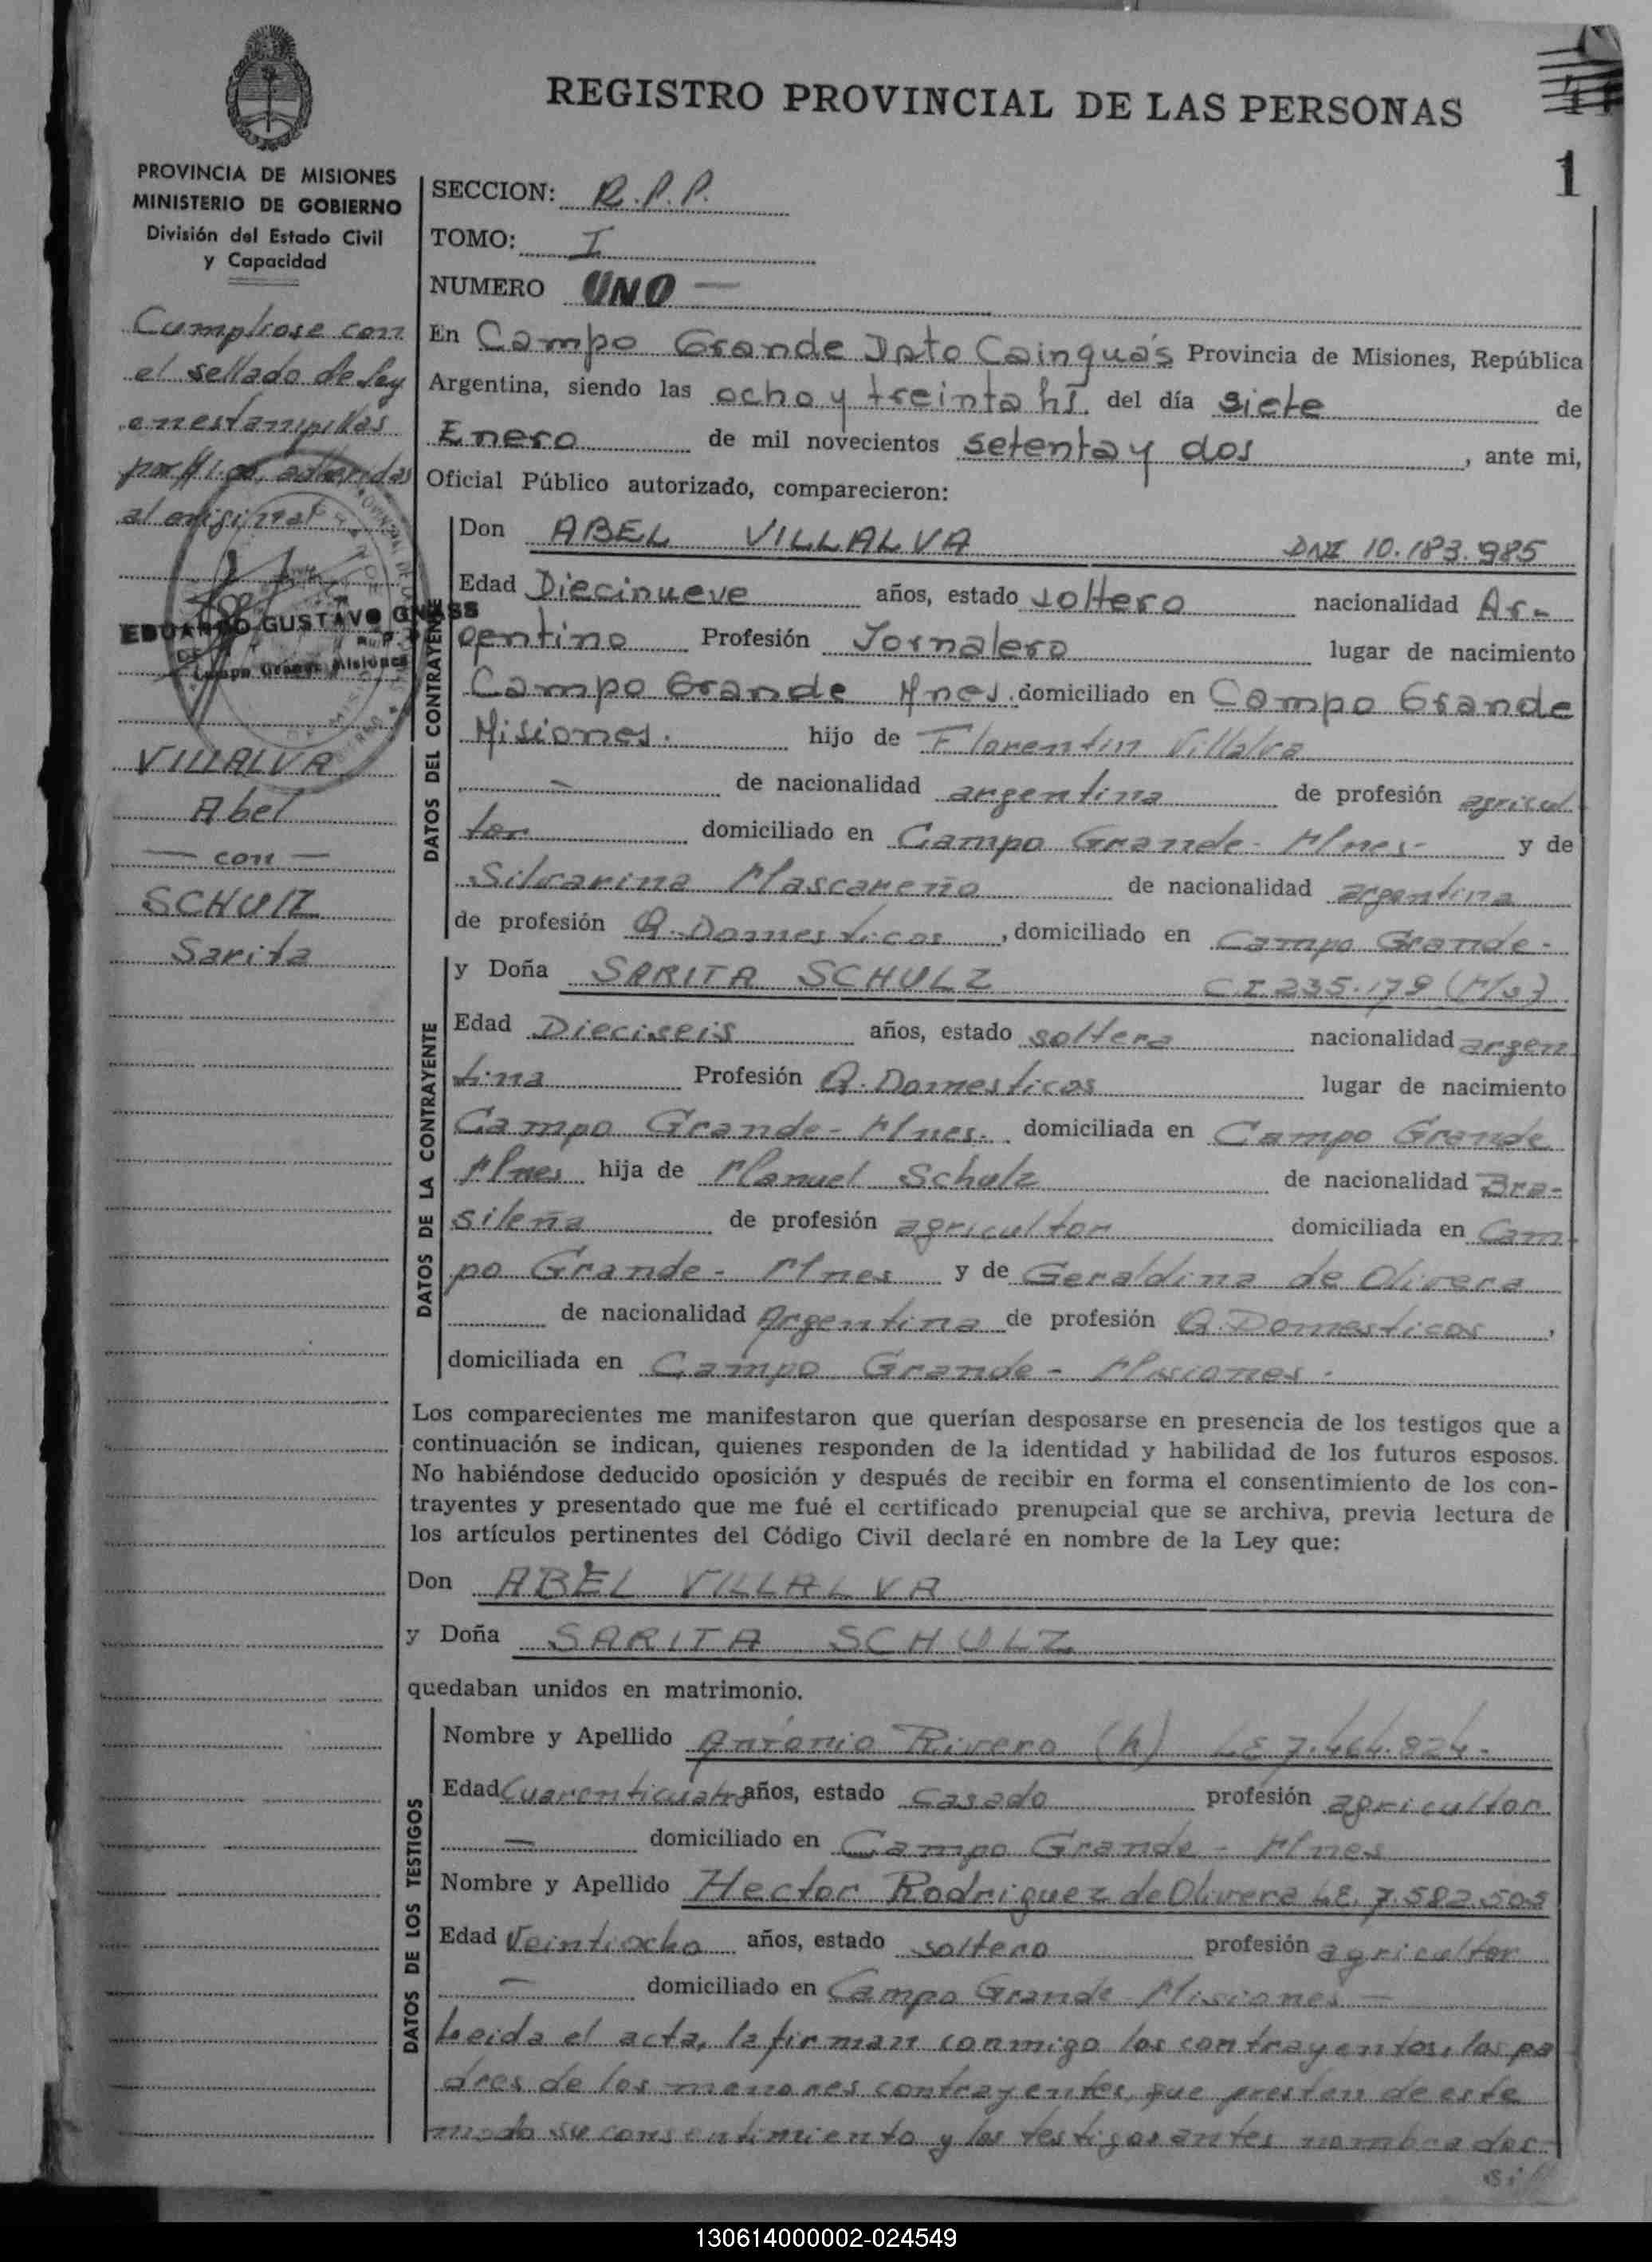 REGISTRO PROVINCIAL DE LAS PERSONAS
1
PROVINCIA DE MISIONES
MINISTERIO DE GOBIERNO
División del Estado Civil
y Capacidad
Cumpliose con
el sellado de ley
en estampillas
adheridas
al original
EDUARDO GUSTAVO GNASS
Campo Grande Misiones
VILLALVA
Abel
— con —
SCHULZ
Sarita
SECCION: R.P.P.
TOMO: I
NUMERO UNO —
En Campo Grande Dpto Cainguás Provincia de Misiones, República
Argentina, siendo las ocho y treinta hs. del día siete de
Enero de mil novecientos setenta y dos, ante mi,
Oficial Público autorizado, comparecieron:
DATOS DEL CONTRAYENTE
Don ABEL VILLALVA DNI 10.183.985
Edad Diecinueve años, estado soltero nacionalidad Ar-
gentino Profesión Jornalero lugar de nacimiento
Campo Grande Mnes. domiciliado en Campo Grande
Misiones. hijo de Florentin Villalva
— de nacionalidad argentina de profesión agricul
tor domiciliado en Campo Grande - Mnes- y de
Silvarina Mascareño de nacionalidad argentina
de profesión Q. Domesticos, domiciliado en Campo Grande-
DATOS DE LA CONTRAYENTE
y Doña SARITA SCHULZ C I 235.179 (Ms)
Edad Dieciseis años, estado soltera nacionalidad argen
tina Profesión Q. Domesticos lugar de nacimiento
Campo Grande - Mnes. domiciliada en Campo Grande
Mnes hija de Manuel Schulz de nacionalidad Bra-
sileña de profesión agricultor domiciliada en Cam
po Grande - Mnes y de Geraldina de Olivera
de nacionalidad Argentina de profesión Q. Domesticos,
domiciliada en Campo Grande - Misiones -
Los comparecientes me manifestaron que querían desposarse en presencia de los testigos que a
continuación se indican, quienes responden de la identidad y habilidad de los futuros esposos.
No habiéndose deducido oposición y después de recibir en forma el consentimiento de los con-
trayentes y presentado que me fué el certificado prenupcial que se archiva, previa lectura de
los artículos pertinentes del Código Civil declaré en nombre de la Ley que:
Don ABEL VILLALVA
y Doña SARITA SCHULZ
quedaban unidos en matrimonio.
DATOS DE LOS TESTIGOS
Nombre y Apellido Antonio Rivero (h) LE 7.464.824-
Edad Cuarenticuatro años, estado casado profesión agricultor
— domiciliado en Campo Grande - Mnes
Nombre y Apellido Hector Rodriguez de Olivera L.E. 7.582.505
Edad Veintiocho años, estado soltero profesión agricultor
— domiciliado en Campo Grande - Misiones —
Leida el acta, la firman conmigo los contrayentes, los pa
dres de los menores contrayentes, que prestan de este
modo su consentimiento y los testigos antes nombrados-
130614000002-024549